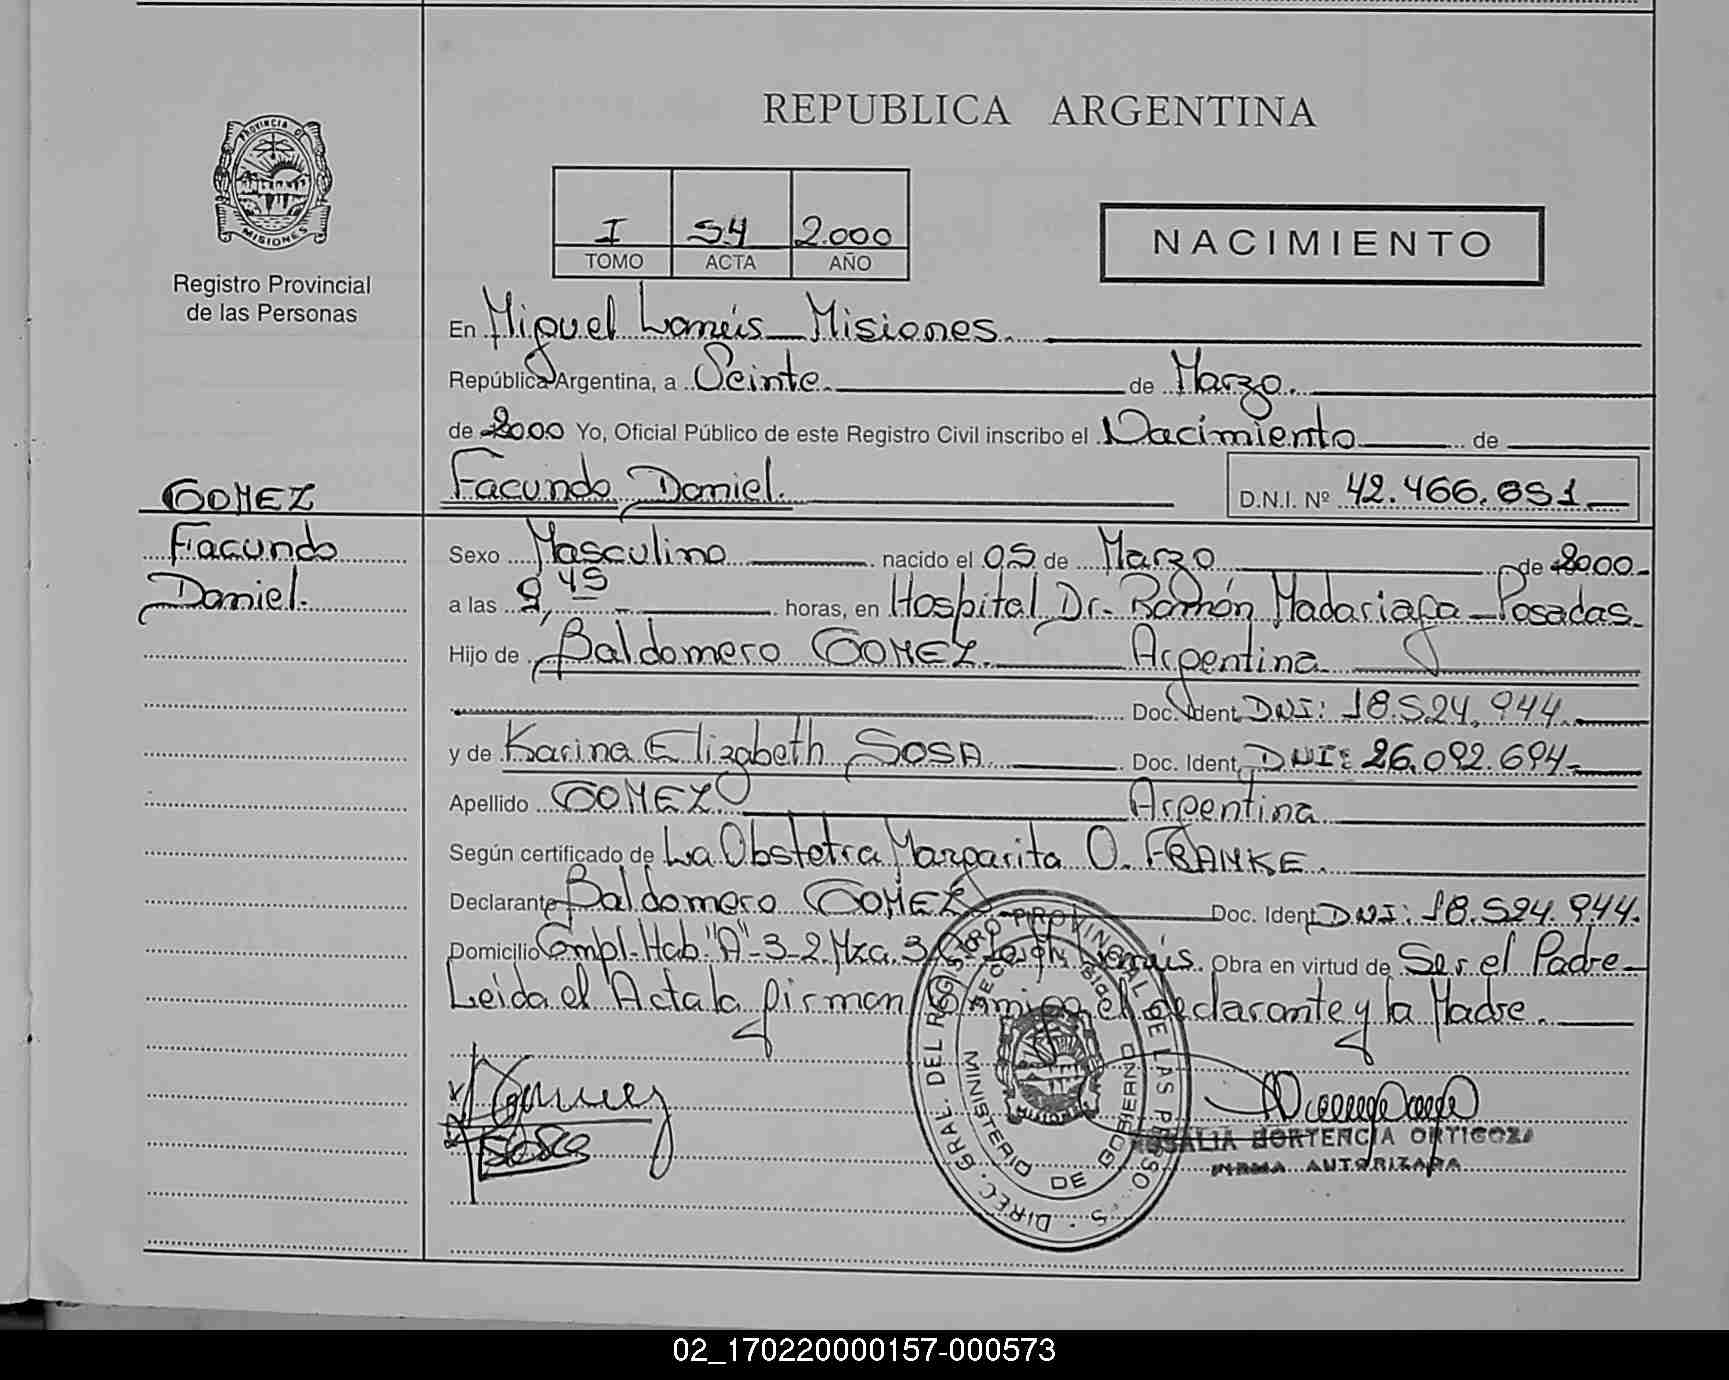 REPUBLICA ARGENTINA
PROVINCIA DE
MISIONES
Registro Provincial
de las Personas
I 54 2.000
TOMO ACTA AÑO
NACIMIENTO
En Miguel Lanéis - Misiones.
República Argentina, a Veinte de Marzo.
de 2000 Yo, Oficial Público de este Registro Civil inscribo el Nacimiento de
Facundo Daniel. D.N.I. Nº 42.466.651
GOMEZ
Facundo
Daniel.
Sexo Masculino nacido el 05 de Marzo de 2000
a las 9,45 horas, en Hospital Dr. Ramón Madariaga - Posadas.
Hijo de Baldomero GOMEZ. Argentina
Doc. Ident. DNI: 18.524.944.
y de Karina Elizabeth SOSA Doc. Ident. DNI: 26.092.694.
Apellido GOMEZ Argentina
Según certificado de La Obstetra Margarita O. FRANKE.
Declarante Baldomero GOMEZ Doc. Ident. DNI: 18.524.944.
Domicilio Compl. Hab. "A"-3-2 Mza. 3 Obra en virtud de Ser el Padre
Leida el Acta la firman Conmigo el declarante y la Madre.
DIREC. GRAL. DEL REGISTRO PROVINCIAL DE LAS PERSO S.
MINISTERIO DE GOBIERNO
Gomez
Sosa
ROSALIA HORTENCIA ORTIGOZA
FIRMA AUTORIZADA
02_170220000157-000573